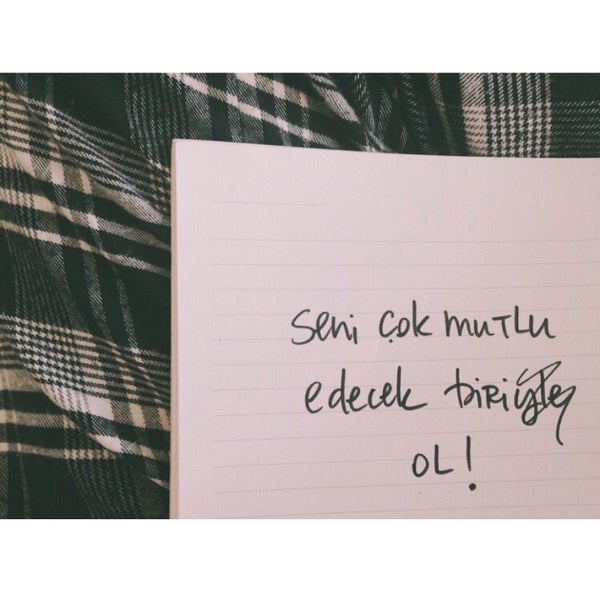 seni çok mutlu
edecek biriyle
OL!